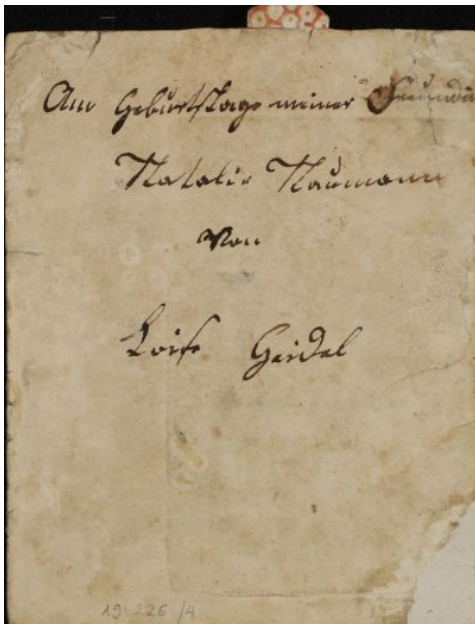 Am Geburtstage meiner Freundin
Natalie Naumann
Von
Loise Geidel
19 226/4